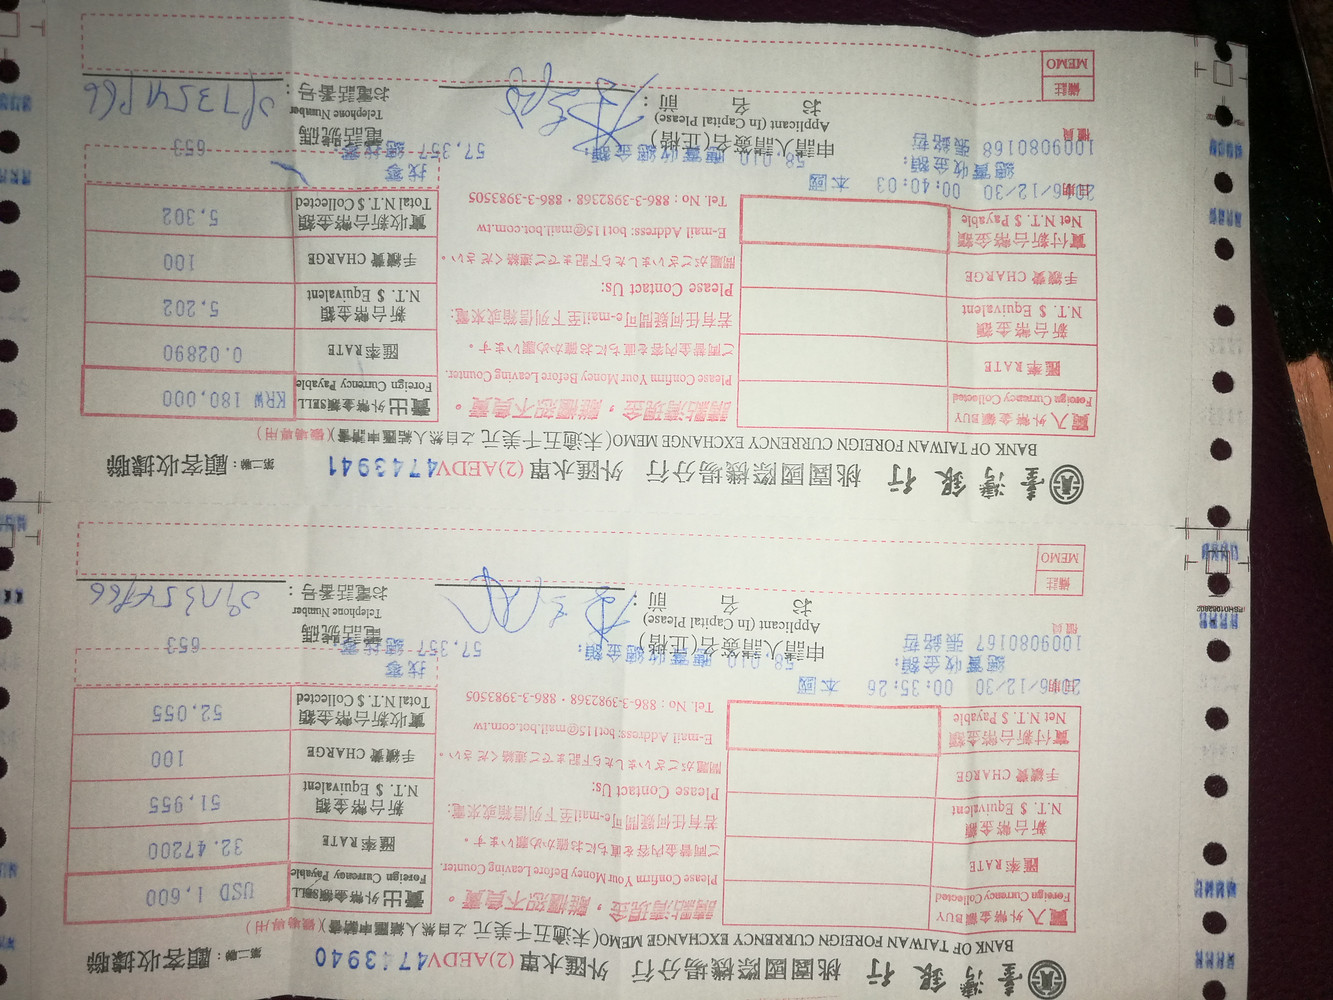 臺灣銀行 桃園國際機場分行 外匯水單 (2)AEDV4743940 第二聯：顧客收據聯
BANK OF TAIWAN FOREIGN CURRENCY EXCHANGE MEMO(未逾五千美元之自然人結匯申請書)(機場專用)
買入外幣金額BUY
Foreign Currency Collected
請點清現金，離櫃恕不負責。
Please Confirm Your Money Before Leaving Counter.
賣出外幣金額SELL
Foreign Currency Payable
USD 1,600
匯率RATE
ご両替金内容を直ちにお確かめ願います。
匯率RATE
32.47200
新台幣金額
N.T. $ Equivalent
若有任何疑問可e-mail至下列信箱或來電:
Please Contact Us:
新台幣金額
N.T. $ Equivalent
51,955
手續費 CHARGE
問題がございましたら下記までご連絡ください。
手續費 CHARGE
100
實付新台幣金額
Net N.T. $ Payable
E-mail Address: bot115@mail.bot.com.tw
Tel. No : 886-3-3982368・886-3-3983505
實收新台幣金額
Total N.T. $ Collected
52,055
日期
2016/12/30 00:35:26 本國
找零
總實收金額:
58,010
應實收總金額:
57,357
總找零:
653
櫃員
1009080167 張銘哲
申請人請簽名(正楷)
Applicant (In Capital Please)
お名前：
電話號碼
Telephone Number
お電話番号：
備註
MEMO
臺灣銀行 桃園國際機場分行 外匯水單 (2)AEDV4743941 第二聯：顧客收據聯
BANK OF TAIWAN FOREIGN CURRENCY EXCHANGE MEMO(未逾五千美元之自然人結匯申請書)(機場專用)
買入外幣金額BUY
Foreign Currency Collected
請點清現金，離櫃恕不負責。
Please Confirm Your Money Before Leaving Counter.
賣出外幣金額SELL
Foreign Currency Payable
KRW 180,000
匯率RATE
ご両替金内容を直ちにお確かめ願います。
匯率RATE
0.02890
新台幣金額
N.T. $ Equivalent
若有任何疑問可e-mail至下列信箱或來電:
Please Contact Us:
新台幣金額
N.T. $ Equivalent
5,202
手續費 CHARGE
問題がございましたら下記までご連絡ください。
手續費 CHARGE
100
實付新台幣金額
Net N.T. $ Payable
E-mail Address: bot115@mail.bot.com.tw
Tel. No : 886-3-3982368・886-3-3983505
實收新台幣金額
Total N.T. $ Collected
5,302
日期
2016/12/30 00:40:03 本國
找零
總實收金額:
58,010
應實收總金額:
57,357
總找零:
653
櫃員
1009080168 張銘哲
申請人請簽名(正楷)
Applicant (In Capital Please)
お名前：
電話號碼
Telephone Number
お電話番号：
備註
MEMO